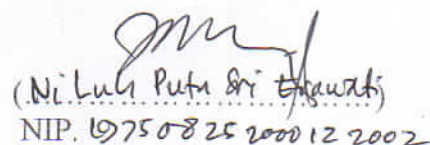 (Ni Luh Putu Sri Erjawati)
NIP. 19750825 200012 2002